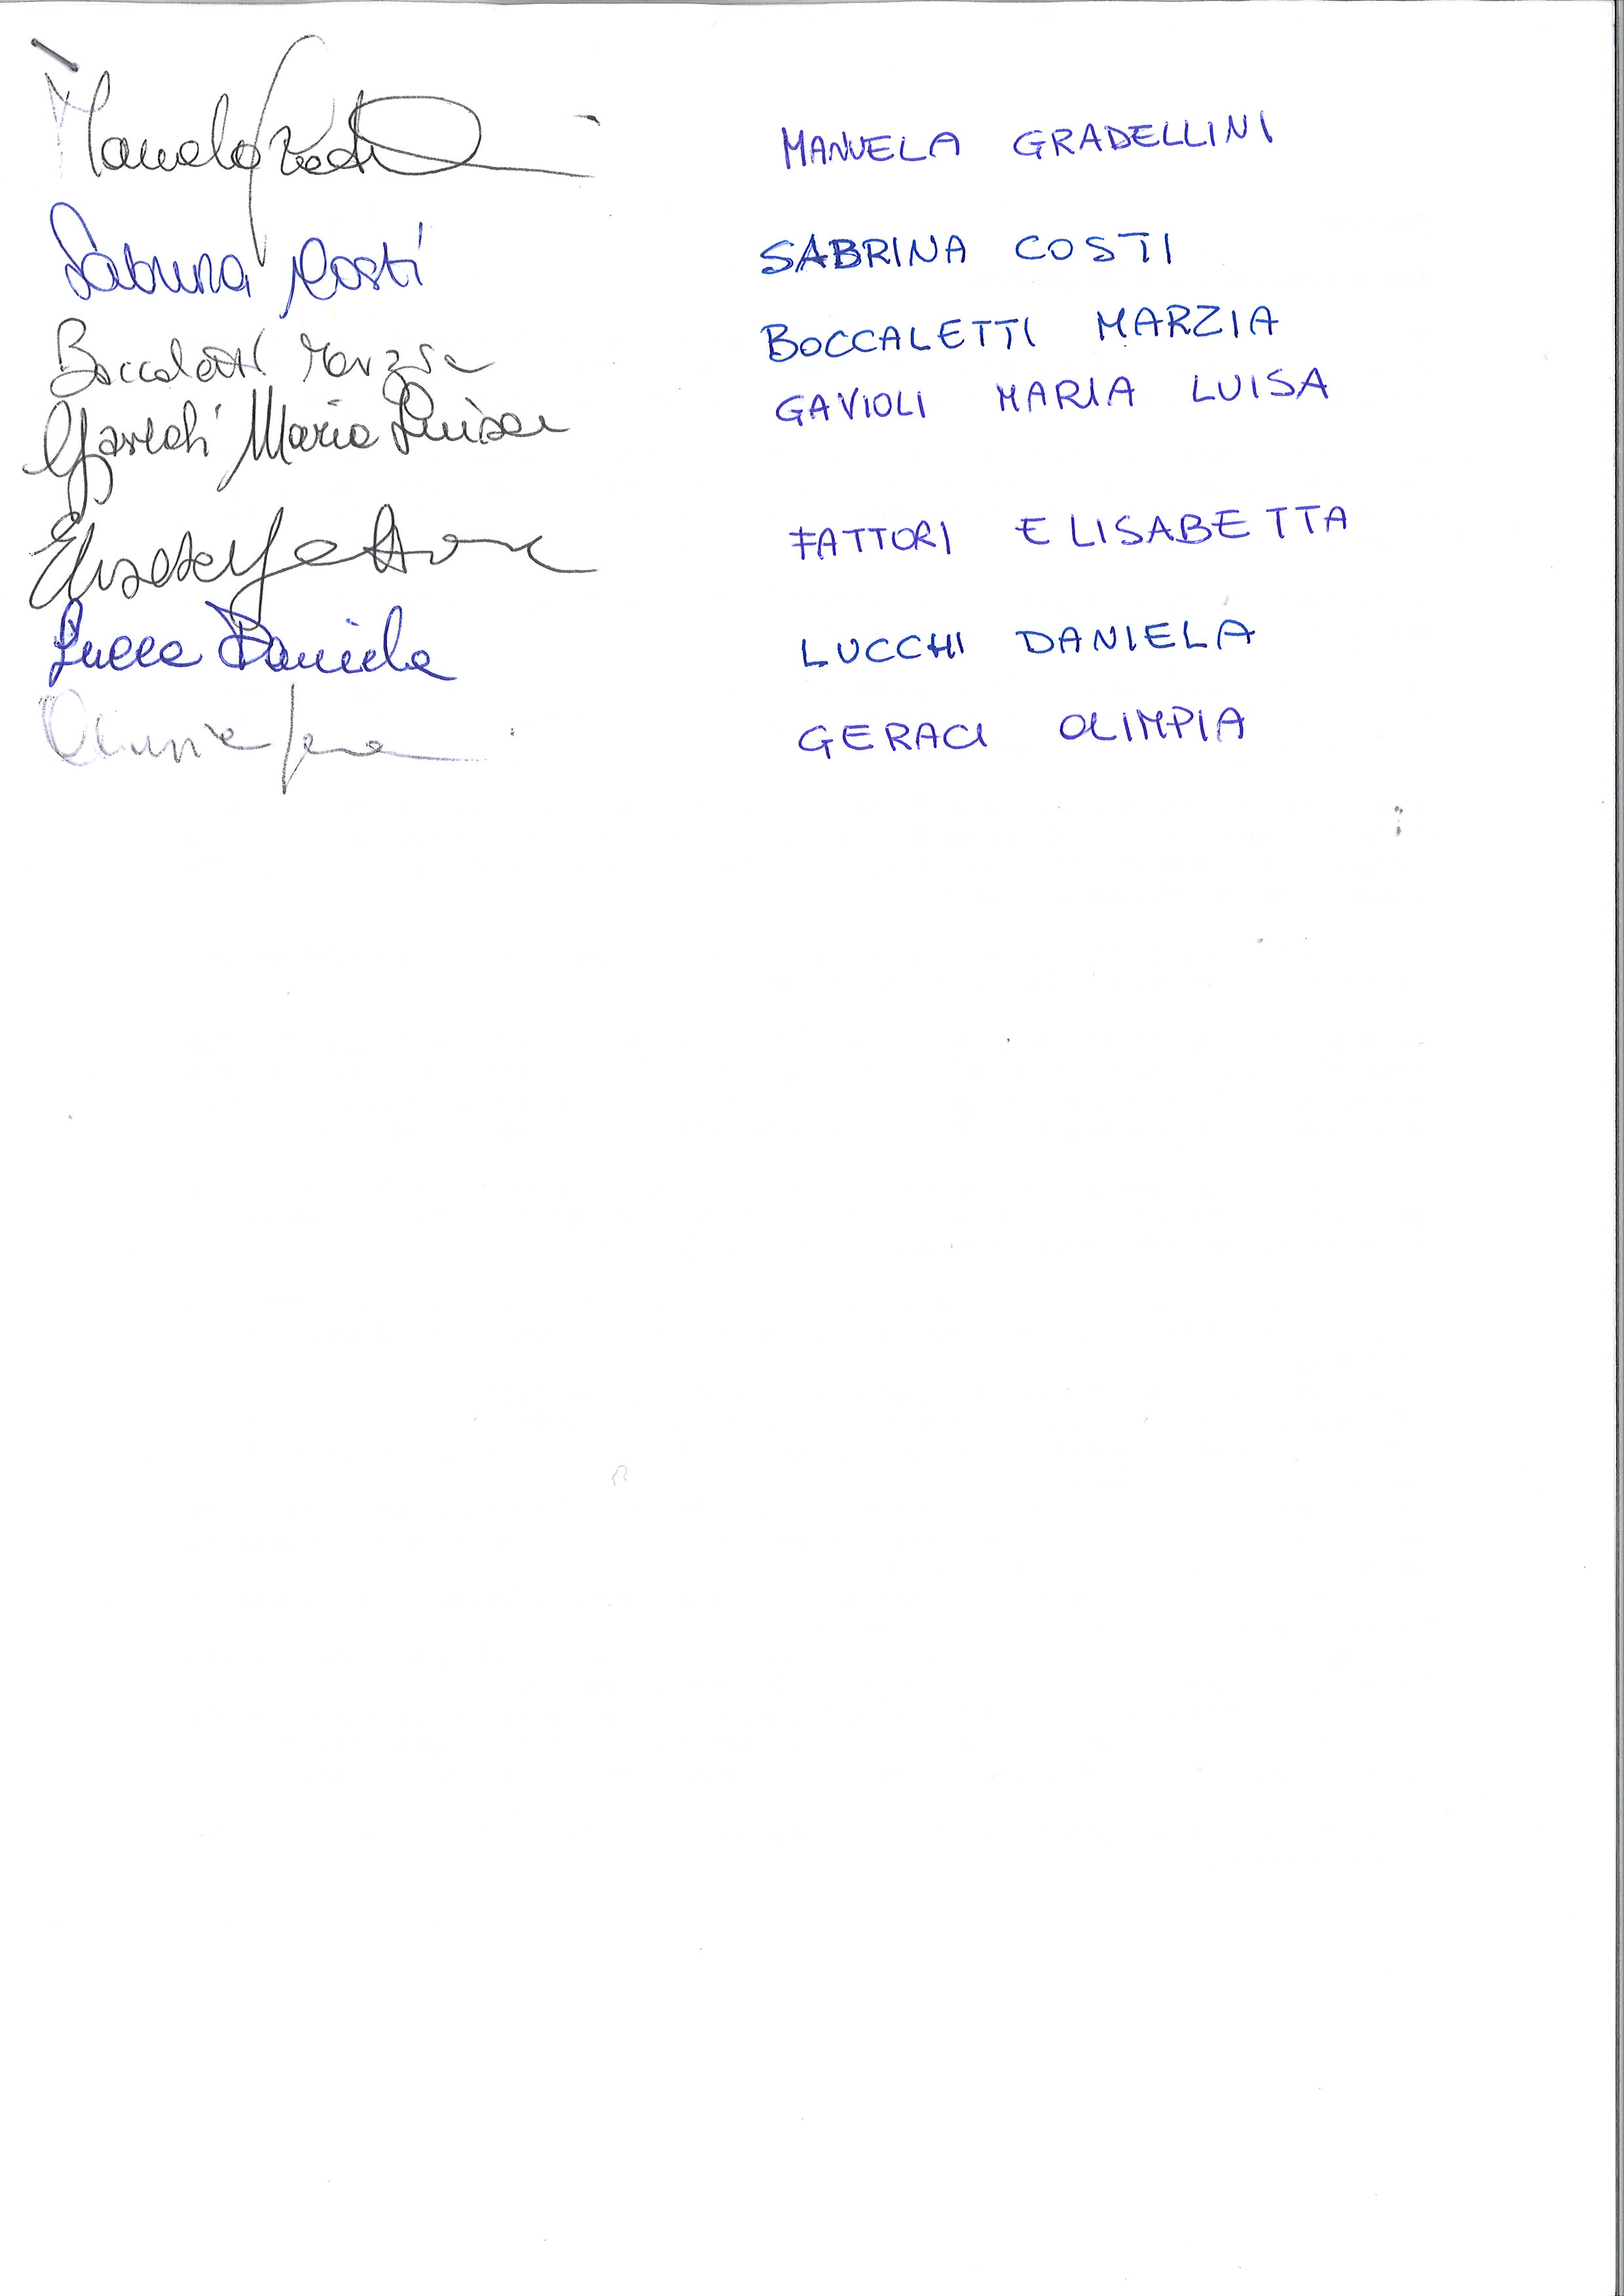 Manuela Gradellini MANUELA GRADELLINI
Sabrina Costi SABRINA COSTI
Boccaletti Marzia BOCCALETTI MARZIA
Gavioli Maria Luisa GAVIOLI MARIA LUISA
Elisabetta Fattori FATTORI ELISABETTA
Lucchi Daniela LUCCHI DANIELA
Olimpia GERACI OLIMPIA